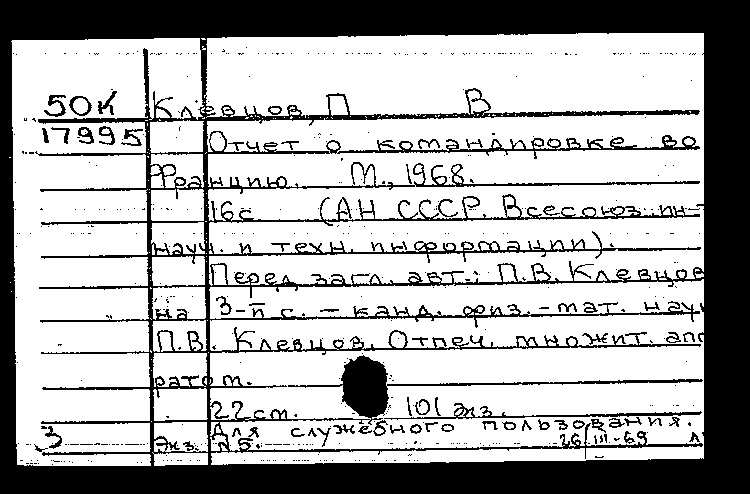 50К Клевцов, П В
17995 Отчет о командировке во
Францию. М., 1968.
16с (АН СССР. Всесоюз. ин-т
науч. и техн. информации).
Перед загл. авт.: П.В. Клевцов
на 3-й с. – канд. физ.-мат. наук
П.В. Клевцов. Отпеч. множит. апп
ратом.
22см. 101 экз.
Для служебного пользования.
3 Экз. №5. 26/III-69